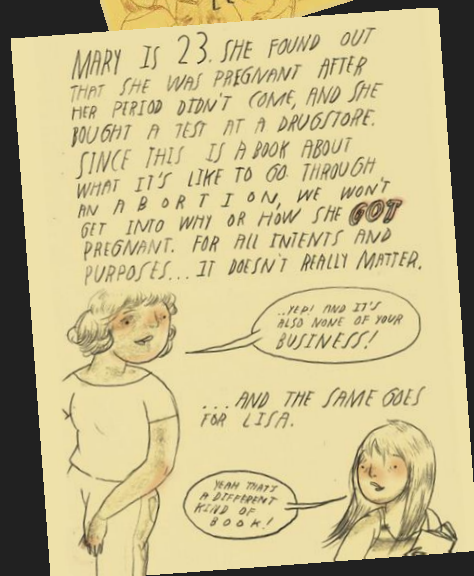 MARY IS 23. SHE FOUND OUT
THAT SHE WAS PREGNANT AFTER
HER PERIOD DIDN'T COME, AND SHE
BOUGHT A TEST AT A DRUGSTORE.
SINCE THIS IS A BOOK ABOUT
WHAT IT'S LIKE TO GO THROUGH
AN ABORTION, WE WON'T
GET INTO WHY OR HOW SHE GOT
PREGNANT. FOR ALL INTENTS AND
PURPOSES... IT DOESN'T REALLY MATTER.
..YEP! AND IT'S
ALSO NONE OF YOUR
BUSINESS!
...AND THE SAME GOES
FOR LISA.
YEAH THAT'S
A DIFFERENT
KIND OF
BOOK!